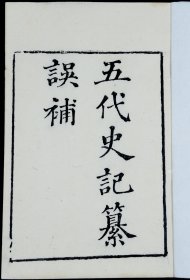 五代史記纂
誤補